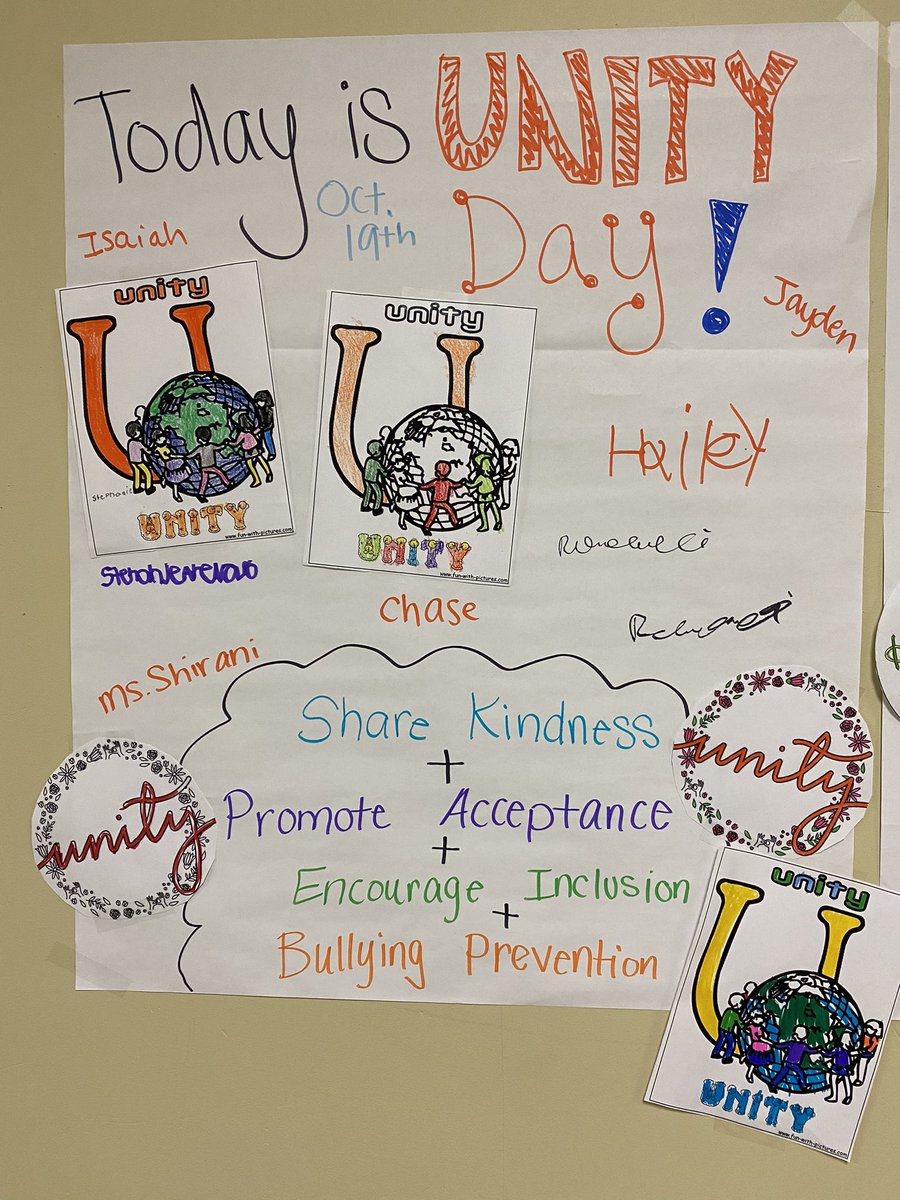 Today is UNITY
Oct.
19th
Day!
Isaiah
Jayden
unity
Stephanie
UNITY
www.fun-with-pictures.com
unity
UNITY
www.fun-with-pictures.com
Hailey
Chase
ms. Shirani
Share Kindness
+
Promote Acceptance
+
Encourage Inclusion
+
Bullying Prevention
unity
unity
unity
UNITY
www.fun-with-pictures.com